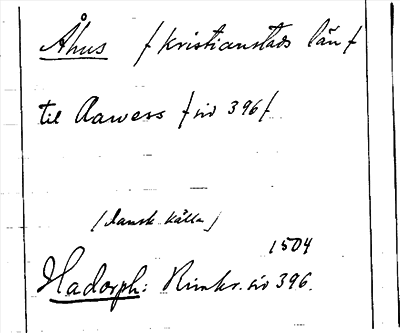 Åhus /Kristianstads län/
til Aawess /sid 396/
/Dansk källa/
1504
Hadorph: Rimkr. sid 396.